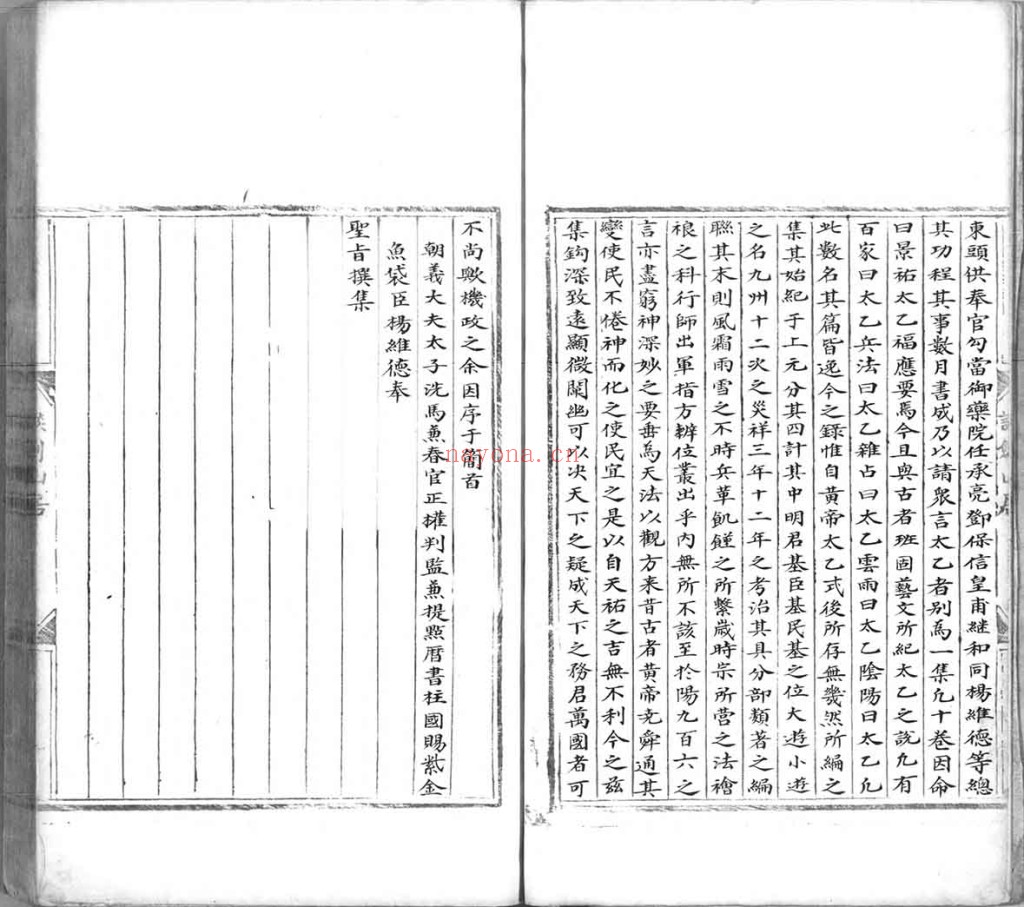 東頭供奉官勾當御藥院任承亮鄧保信皇甫繼和同楊維德等總
其功程其事數月書成乃以請衆言太乙者別為一集凢十卷因命
曰景祐太乙福應要焉今且與古者班固藝文所紀太乙之説凢有
百家曰太乙兵法曰太乙雜占曰太乙雲雨曰太乙陰陽曰太乙凢
此數名其篇皆逸今之錄惟自黃帝太乙式後所存無幾然所編之
集其始紀于上元分其四計其中明君基臣基民基之位大遊小遊
之名九州十二次之災祥三年十二年之考治其具分部類著之編
聮其末則風霜雨雪之不時兵革飢饉之所繫歲時宗所營之法禬
禳之科行師出軍指方辨位叢出乎內無所不該至扵陽九百六之
言亦盡窮神深妙之要毎為天法以觀方来昔古者黃帝尭舜通其
變使民不倦神而化之使民宜之是以自天祐之吉無不利今之茲
集鈎深致遠顯微闡幽可以决天下之疑成天下之務君萬國者可
不尚歟機政之余因序于簡首
朝義大夫太子洗馬兼春官正權判監兼提㸃曆書柱國賜紫金
魚袋臣楊維德奉
聖旨撰集
nayona.cn